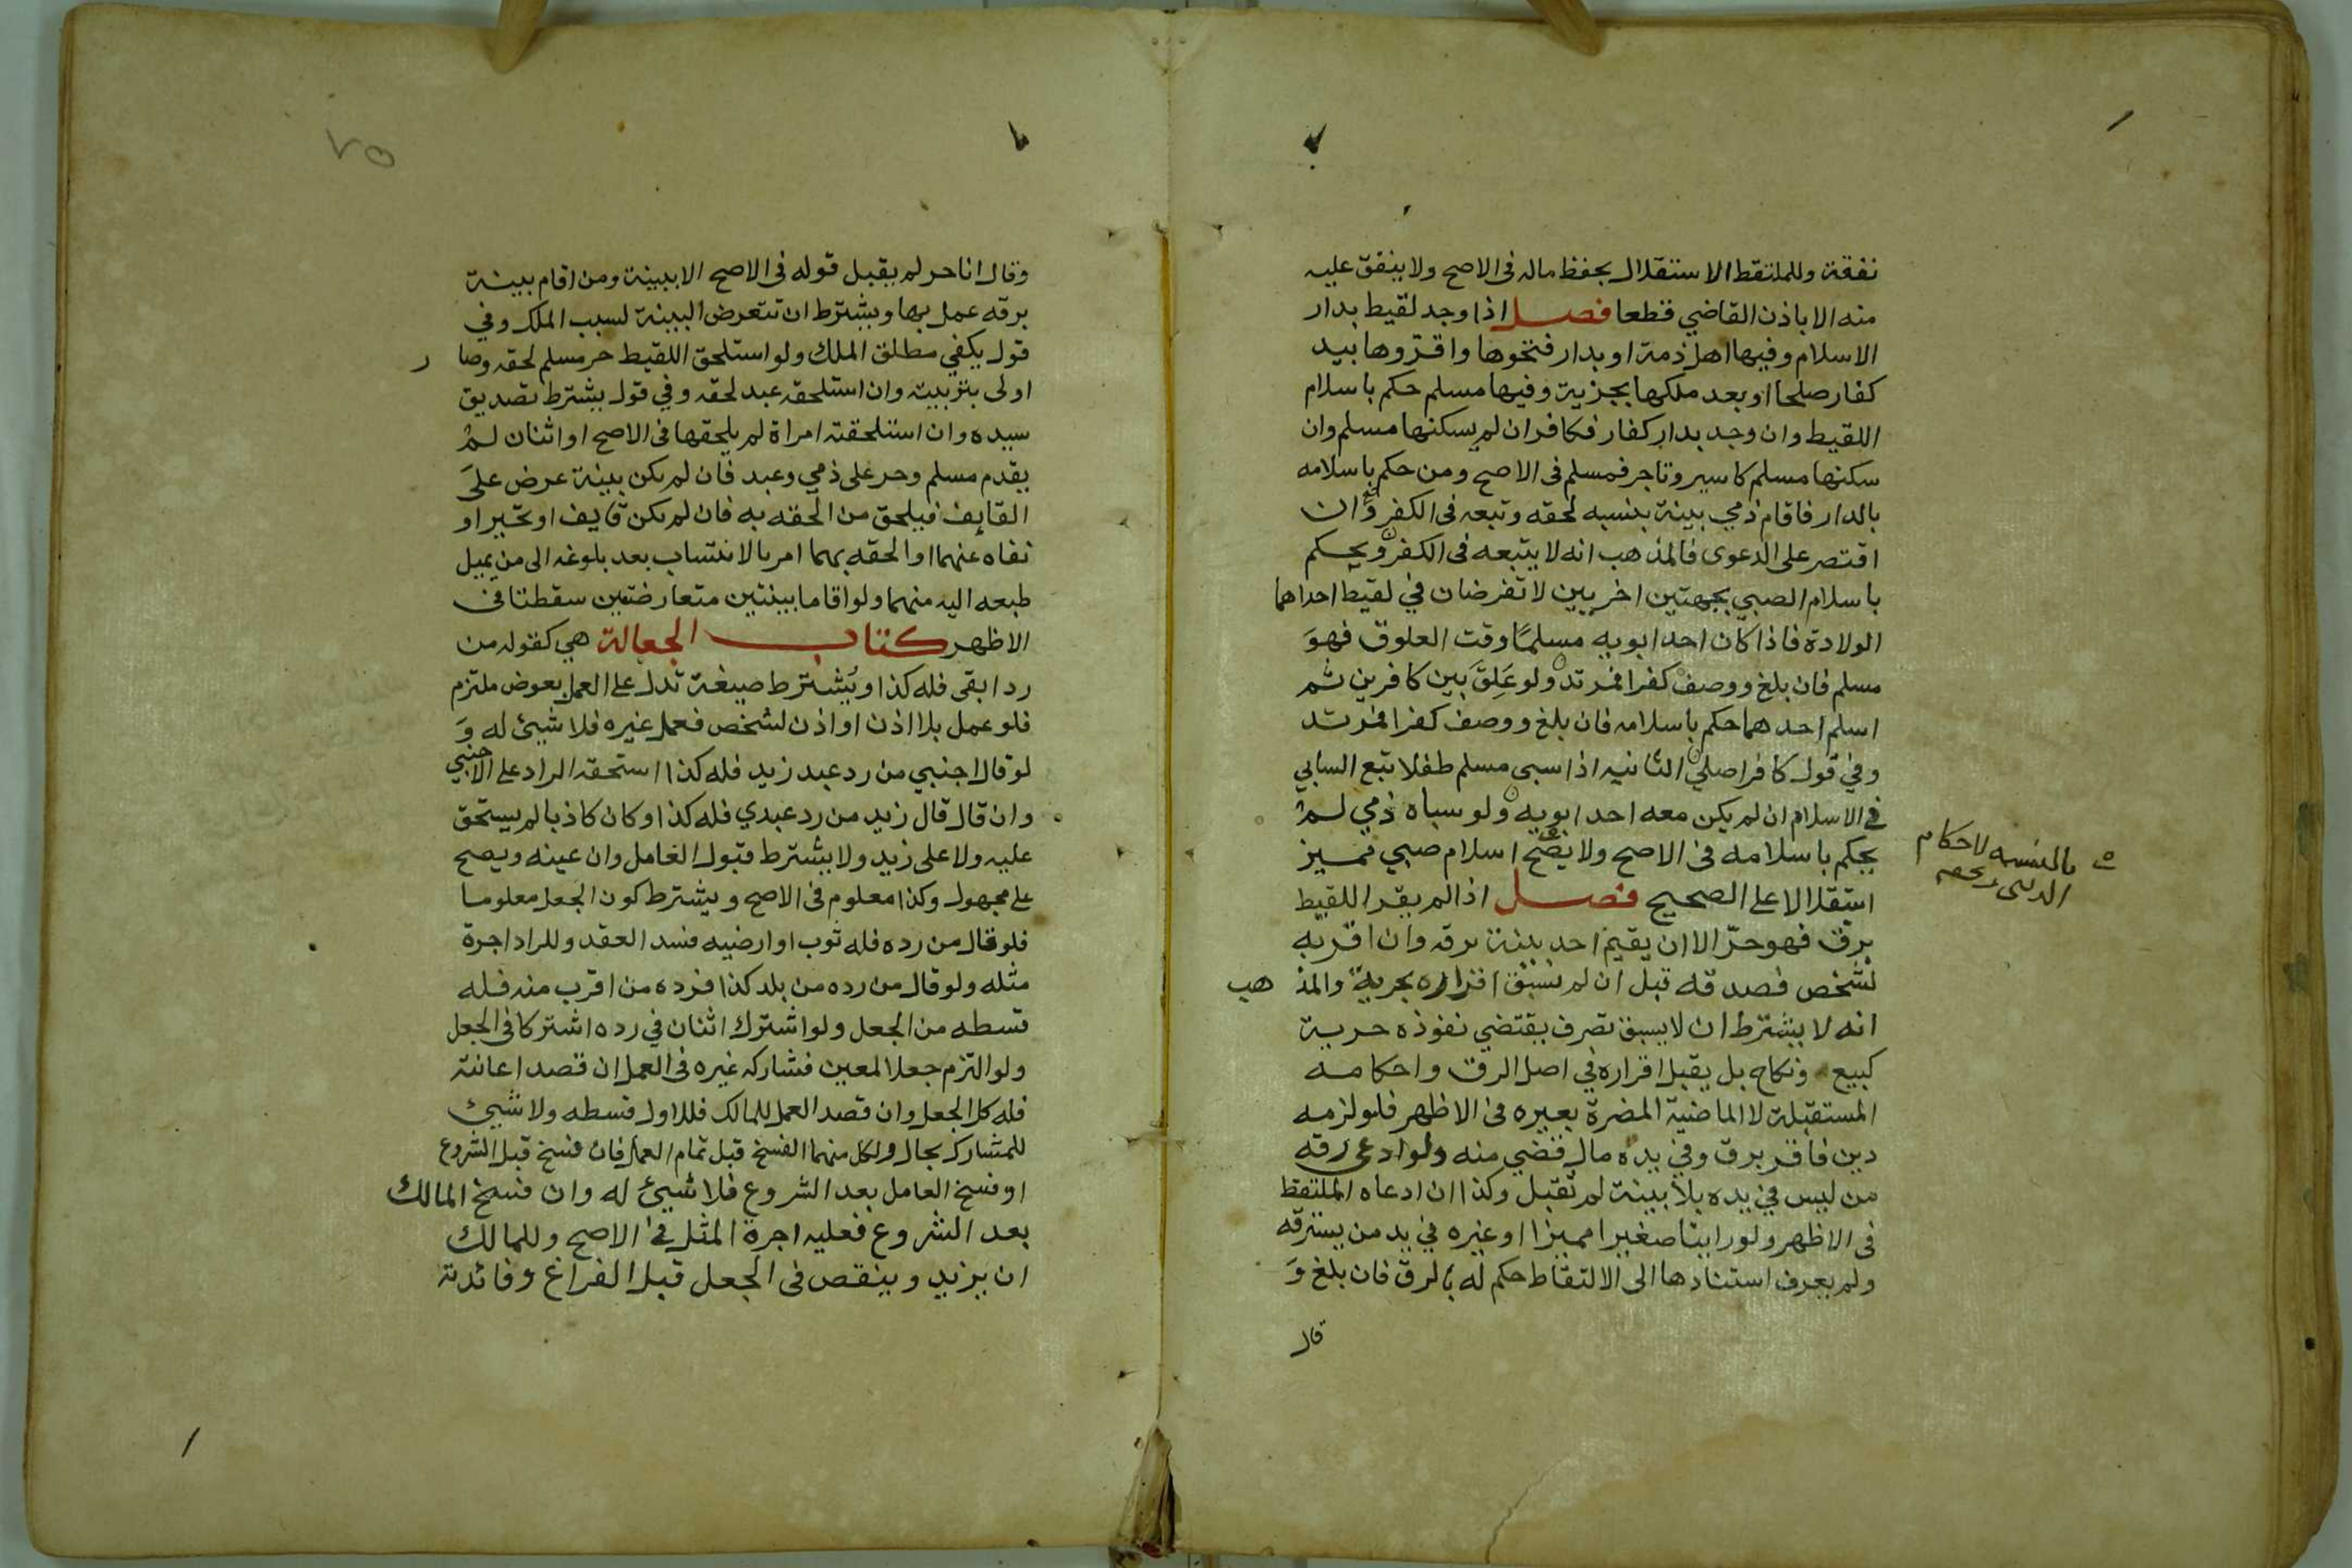 نفقة وللملتقط الاستقلال بحفظ ماله فى الاصح ولا ينفق عليه
منه الا باذن القاضي قطعا فصل اذا وجد لقيط بدار
الاسلام وفيها اهل ذمة او بدار فتحوها واقروها بيد
كفار صلحا او بعد ملكها بجزية وفيها مسلم حكم باسلام
اللقيط وان وجد بدار كفار فكافر ان لم يسكنها مسلم وان
سكنها مسلم كاسير وتاجر فمسلم فى الاصح ومن حكم باسلامه
بالدار فاقام ذمي بينة بنسبه لحقه وتبعه فى الكفر وان
اقتصر على الدعوى فالمذهب انه لا يتبعه فى الكفر ويحكم
باسلام الصبي بجهتين اخريين لا تفرضان في لقيط احداهما
الولادة فاذا كان احد ابويه مسلمًا وقت العلوق فهوَ
مسلم فان بلغ ووصف كفرا فمرتد ولو عَلِقَ بَين كافرين ثم
اسلم احدهما حكم باسلامه فان بلغ ووصف كفرا فمرتد
وفي قول كافر اصلي الثانيه اذا سبى مسلم طفلا تبع السابي
في الاسلام ان لم يكن معه احد ابويه ولو سباه ذمي لم
يحكم باسلامه فى الاصح ولا يصح اسلام صبي مميز
استقلالا على الصحيح فصل اذا لم يقر اللقيط
برق فهو حرّ الا ان يقيم احد بينة برقه وان اقر به
لشخص فصدقه قبل ان لم يسبق اقراره بحرية والمذ هب
انه لا يشترط ان لا يسبق تصرف يقتضي نفوذه حرية
كبيع ونكاح بل يقبل اقراره في اصل الرق واحكامه
المستقبلة لا الماضية المضرة بغيره فى الاظهر فلو لزمه
دين فاقر برق وفي يده مال قضي منه ولو ادعى رقه
من ليس في يده بلا بينة لم تقبل وكذا ان ادعاه الملتقط
فى الاظهر ولو راينا صغيرا مميزا او غيره في يد من يسترقه
ولم يعرف استنادها الى الالتقاط حكم له بالرق فان بلغ وَ
قال
بالنسبه لاحكام
وقال انا حر لم يقبل قوله فى الاصح الا ببينة ومن اقام بينة
برقه عمل بها ويشترط ان تتعرض البينة لسبب الملك وفي
قول يكفي مطلق الملك ولو استلحق اللقيط حر مسلم لحقه وصا ر
اولى بتربيته وان استلحقه عبد لحقه وفي قول يشترط تصديق
سيده وان استلحقته امراة لم يلحقها فى الاصح او اثنان لم
يقدم مسلم وحر على ذمي وعبد فان لم يكن بينة عرض علَى
القايف فيلحق من الحقه به فان لم يكن قايف او تحير او
نفاه عنهما او الحقه بهما امر بالانتساب بعد بلوغه الى من يميل
طبعه اليه منهما ولو اقاما بينتين متعارضتين سقطتا فى
الاظهر كتاب الجعالة هي كقوله من
رد ابقى فله كذا ويُشترط صيغة تدل على العمل بعوض ملتزم
فلو عمل بلا اذن او اذن لشخص فعمل غيره فلا شيئ له وَ
لو قال اجنبي من رد عبد زيد فله كذا استحقه الراد على الاجنبي
وان قال قال زيد من رد عبدي فله كذا وكان كاذبا لم يستحق
عليه ولا على زيد ولا يشترط قبول العامل وان عينه ويصح
على مجهول وكذا معلوم فى الاصح ويشترط كون الجعل معلوما
فلو قال من رده فله ثوب او ارضيه فسد العقد وللراد اجرة
مثله ولو قال من رده من بلد كذا فرده من اقرب منه فله
قسطه من الجعل ولو اشترك اثنان في رده اشتركا فى الجعل
ولو التزم جعلا لمعين فشاركه غيره فى العمل ان قصد اعانته
فله كل الجعل وان قصد العمل للمالك فللاول قسطه ولا شيئ
للمشارك بحال ولكل منهما الفسخ قبل تمام العمل فان فسخ قبل الشروع
او فسخ العامل بعد الشروع فلا شيئ له وان فسخ المالك
بعد الشروع فعليه اجرة المثل فى الاصح وللمالك
ان يزيد وينقص فى الجعل قبل الفراغ وفائدته